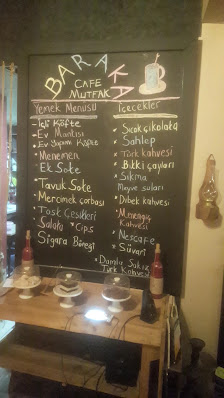 BARAKA
CAFE
MUTFAK
Yemek Menüsü
-İçli Köfte
-Ev Mantısı
-Ev Yapımı Köfte
-Menemen
-Et Sote
-Tavuk Sote
-Mercimek çorbası
-Tost Çeşitleri
-Salata -Cips
-Sigara Böreği
İçecekler
-Sıcak çikolata
-Sahlep
-Türk kahvesi
-Bitki çayları
-Sıkma
Meyve suları
-Dibek kahvesi
-Menengiç
Kahvesi
-Nescafe
-Süvari
-Damla Sakız
Türk Kahvesi